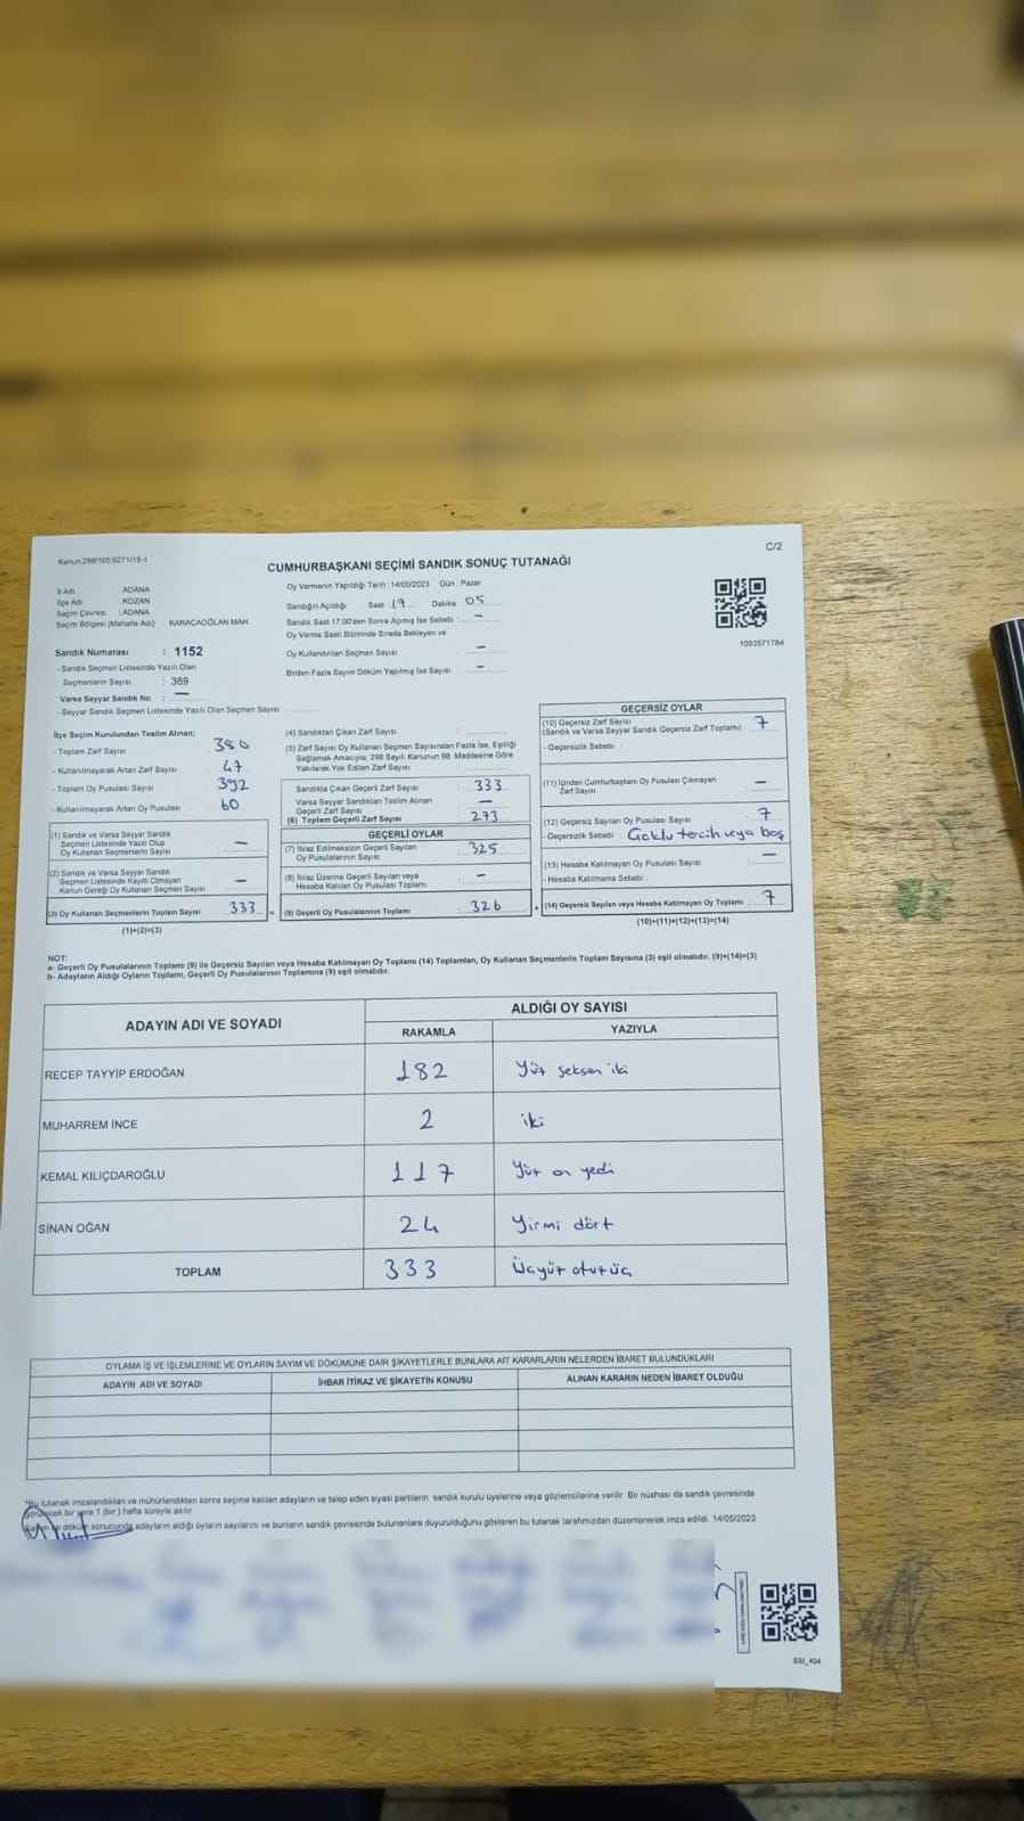 Kanun:298/105;6271/18-1
C/2
CUMHURBAŞKANI SEÇİMİ SANDIK SONUÇ TUTANAĞI
İl Adı : ADANA
İlçe Adı : KOZAN
Seçim Çevresi : ADANA
Seçim Bölgesi (Mahalle Adı) : KARACAOĞLAN MAH.
Oy Vermenin Yapıldığı Tarih :14/05/2023 Gün : Pazar
Sandığın Açıldığı Saat : 19 Dakika : 05
Sandık Saat 17:00'den Sonra Açılmış İse Sebebi : -
Oy Verme Saati Bitiminde Sırada Bekleyen ve
Oy Kullandırılan Seçmen Sayısı : -
Birden Fazla Sayım Döküm Yapılmış İse Sayısı : -
1093571784
Sandık Numarası : 1152
- Sandık Seçmen Listesinde Yazılı Olan
Seçmenlerin Sayısı : 389
Varsa Seyyar Sandık No : -
- Seyyar Sandık Seçmen Listesinde Yazılı Olan Seçmen Sayısı
İlçe Seçim Kurulundan Teslim Alınan;
- Toplam Zarf Sayısı 380
- Kullanılmayarak Artan Zarf Sayısı 47
- Toplam Oy Pusulası Sayısı 392
- Kullanılmayarak Artan Oy Pusulası 60
(1) Sandık ve Varsa Seyyar Sandık
Seçmen Listesinde Yazılı Olup
Oy Kullanan Seçmenlerin Sayısı -
(2) Sandık ve Varsa Seyyar Sandık
Seçmen Listesinde Kayıtlı Olmayan
Kanun Gereği Oy Kullanan Seçmen Sayısı -
(3) Oy Kullanan Seçmenlerin Toplam Sayısı 333 =
(1)+(2)=(3)
(4) Sandıktan Çıkan Zarf Sayısı
(5) Zarf Sayısı Oy Kullanan Seçmen Sayısından Fazla İse, Eşitliği
Sağlamak Amacıyla, 298 Sayılı Kanunun 98. Maddesine Göre
Yakılarak Yok Edilen Zarf Sayısı
Sandıkta Çıkan Geçerli Zarf Sayısı : 333
Varsa Seyyar Sandıktan Teslim Alınan
Geçerli Zarf Sayısı : -
(6) Toplam Geçerli Zarf Sayısı : 273
GEÇERLİ OYLAR
(7) İtiraz Edilmeksizin Geçerli Sayılan
Oy Pusulalarının Sayısı : 325
(8) İtiraz Üzerine Geçerli Sayılan veya
Hesaba Katılan Oy Pusulası Toplamı : -
(9) Geçerli Oy Pusulalarının Toplamı : 326 +
GEÇERSİZ OYLAR
(10) Geçersiz Zarf Sayısı
(Sandık ve Varsa Seyyar Sandık Geçersiz Zarf Toplamı) : 7
- Geçersizlik Sebebi :
(11) İçinden Cumhurbaşkanı Oy Pusulası Çıkmayan
Zarf Sayısı : -
(12) Geçersiz Sayılan Oy Pusulası Sayısı : 7
- Geçersizlik Sebebi : Çoklu tercih veya boş
(13) Hesaba Katılmayan Oy Pusulası Sayısı : -
- Hesaba Katılmama Sebebi :
(14) Geçersiz Sayılan veya Hesaba Katılmayan Oy Toplamı : 7
(10)+(11)+(12)+(13)=(14)
NOT:
a- Geçerli Oy Pusulalarının Toplamı (9) ile Geçersiz Sayılan veya Hesaba Katılmayan Oy Toplamı (14) Toplamları, Oy Kullanan Seçmenlerin Toplam Sayısına (3) eşit olmalıdır. (9)+(14)=(3)
b- Adayların Aldığı Oyların Toplamı, Geçerli Oy Pusulalarının Toplamına (9) eşit olmalıdır.
ADAYIN ADI VE SOYADI
ALDIĞI OY SAYISI
RAKAMLA YAZIYLA
RECEP TAYYİP ERDOĞAN 182 Yüz seksen iki
MUHARREM İNCE 2 iki
KEMAL KILIÇDAROĞLU 117 Yüz on yedi
SİNAN OĞAN 24 Yirmi dört
TOPLAM 333 Üçyüz otuz üç
OYLAMA İŞ VE İŞLEMLERİNE VE OYLARIN SAYIM VE DÖKÜMÜNE DAİR ŞİKAYETLERLE BUNLARA AİT KARARLARIN NELERDEN İBARET BULUNDUKLARI
ADAYIN ADI VE SOYADI İHBAR İTİRAZ VE ŞİKAYETİN KONUSU ALINAN KARARIN NEDEN İBARET OLDUĞU
*Bu tutanak imzalandıktan ve mühürlendikten sonra seçime katılan adayların ve talep eden siyasi partilerin sandık kurulu üyelerine veya gözlemcilerine verilir. Bir nüshası da sandık çevresinde
görülecek bir yere 1 (bir) hafta süreyle asılır.
ve döküm sonucunda adayların aldığı oyların sayılarını ve bunların sandık çevresinde bulunanlara duyurulduğunu gösteren bu tutanak tarafımızdan düzenlenerek imza edildi. 14/05/2023